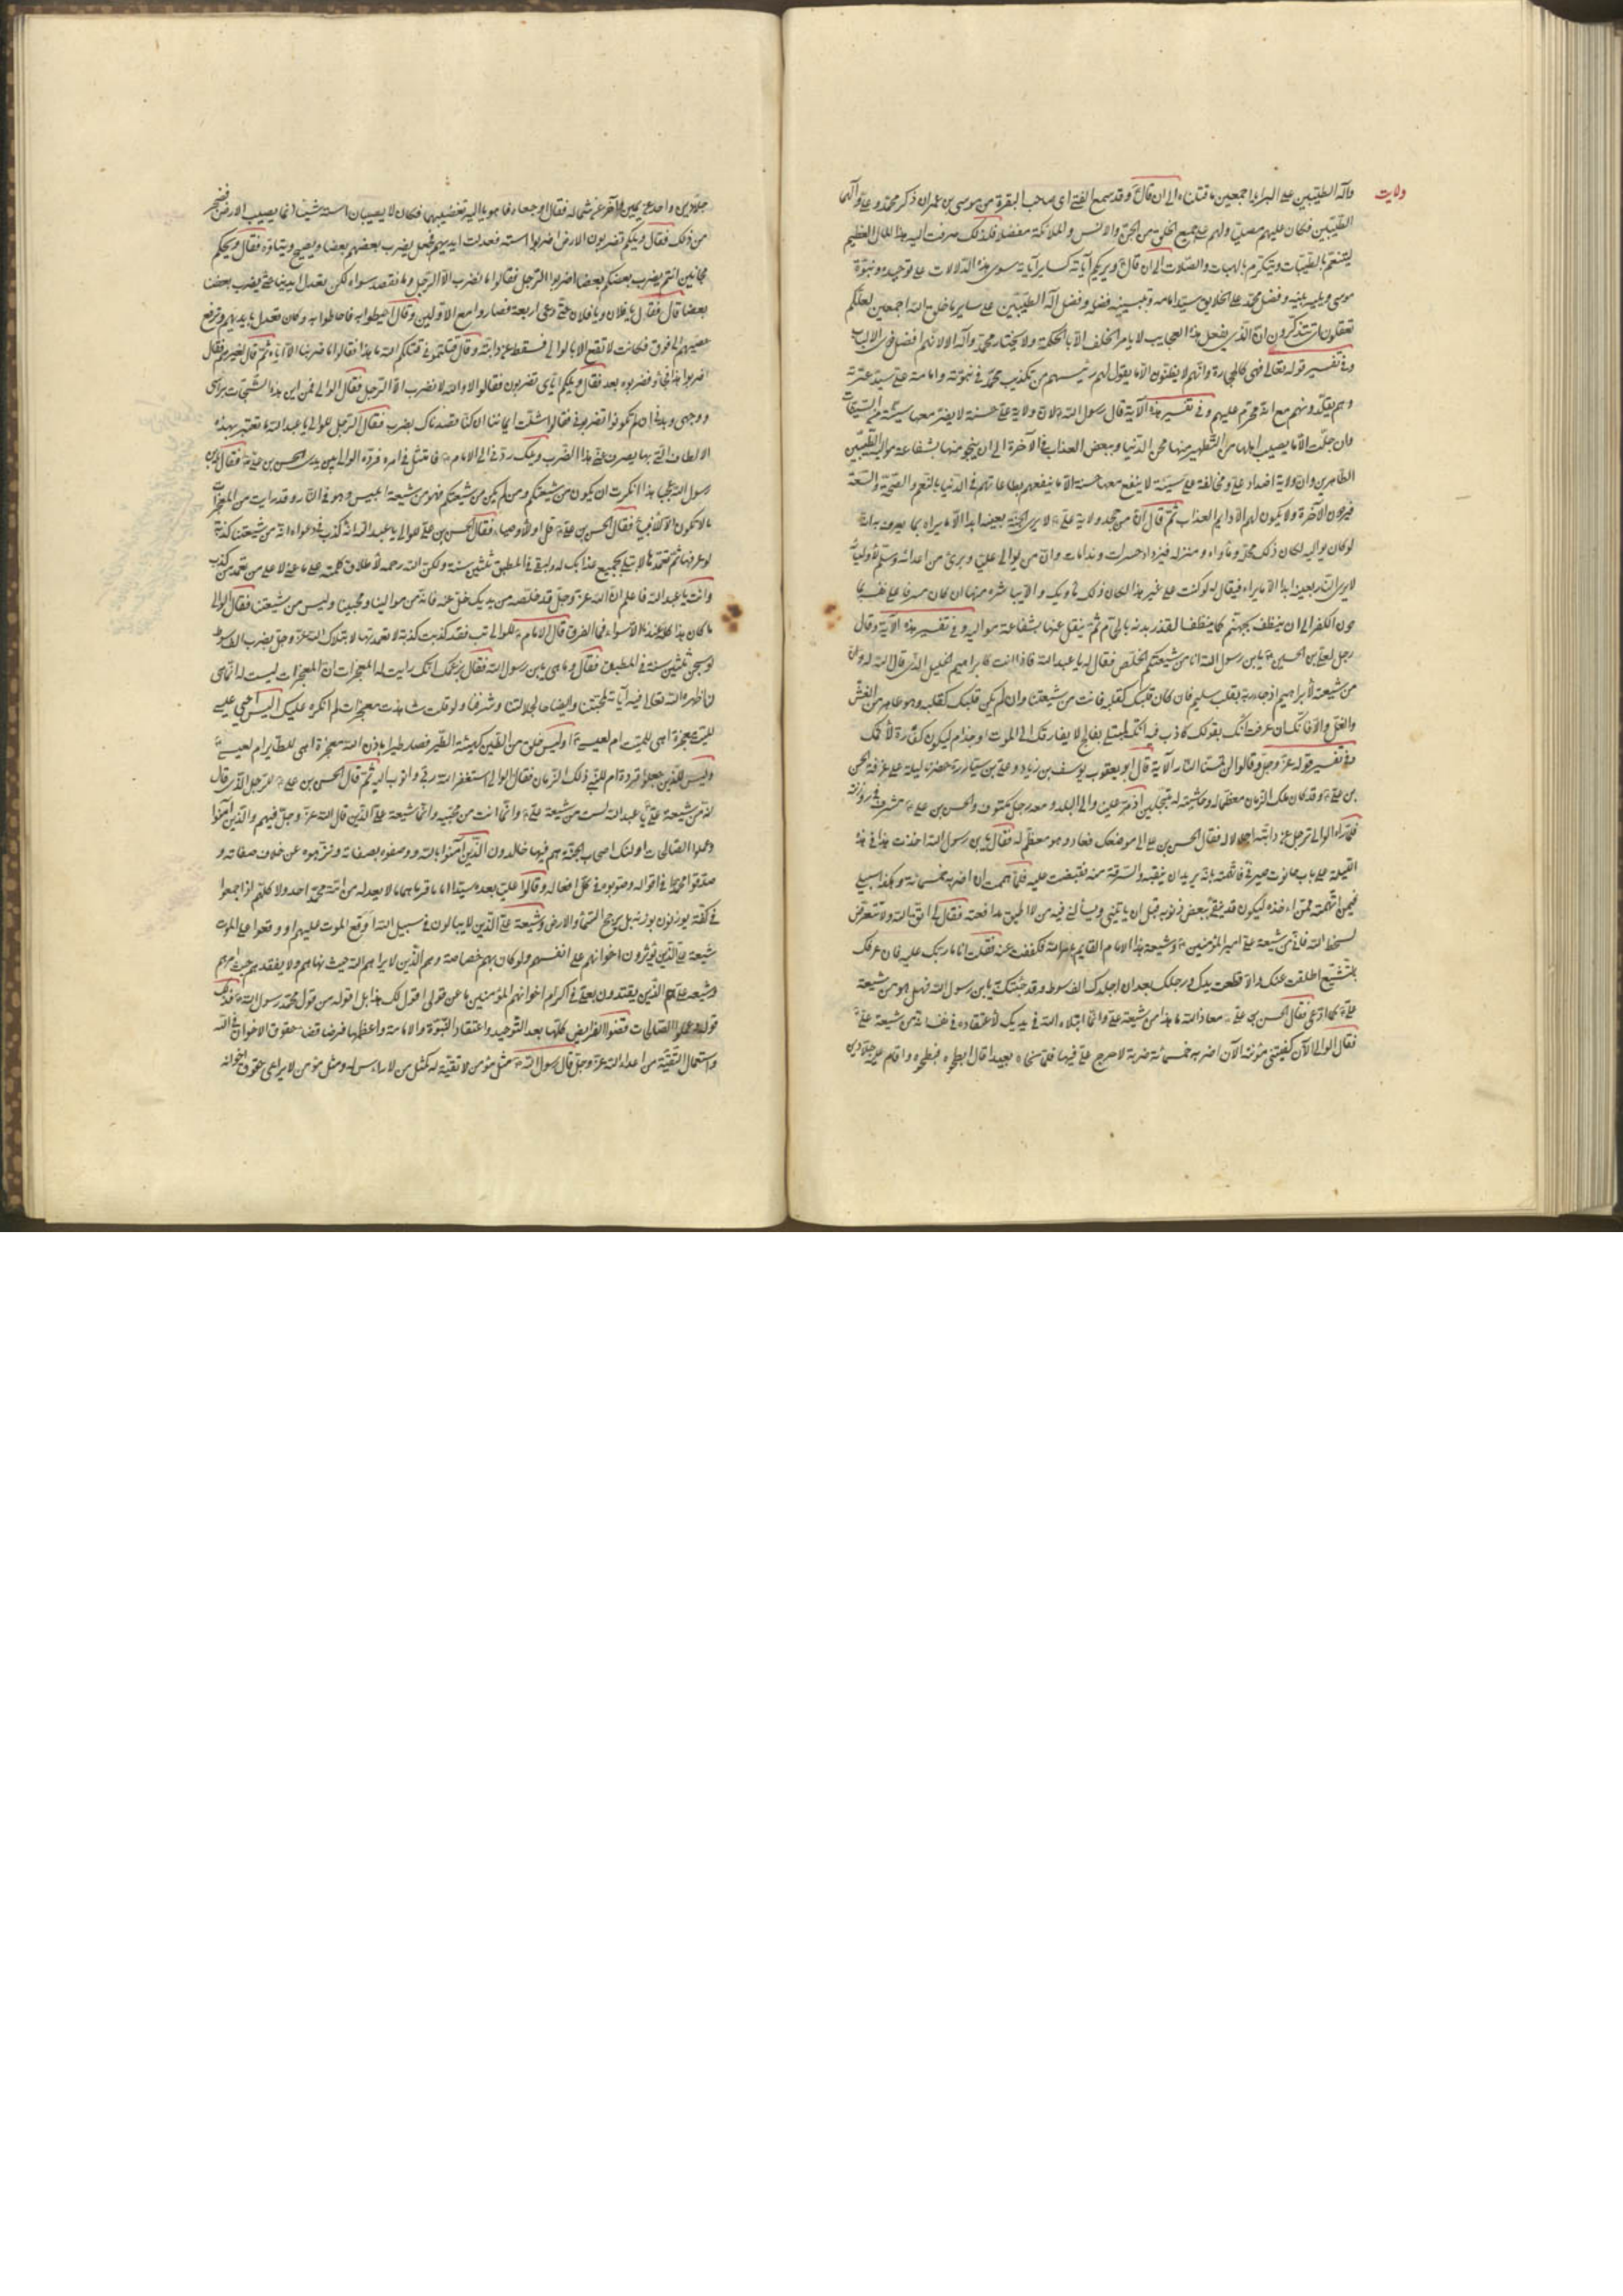 ولايت
وآله الطيبين على البرايا اجمعين ما قتلناه الى ان قال وقد سمع الفتى اى صاحب البقرة من موسى بن عمران ذكر محمد وعلى وآلهما
الطيبين فكان عليهم مصليا ولهم على جميع الخلق من الجن والانس والملائكة مفضلا فلذلك صرفت اليه هذا المال العظيم
ليتنعم بالطيبات ويتكرم بالهبات والصلات الى ان قال ويريكم آياته كساير آياته سوى هذه الدلالات على توحيده ونبوة
موسى وفضل محمد على الخلايق سيد امامه وتبيينه فضله وفضل آله الطيبين على ساير ما خلق الله اجمعين لعلكم
تعقلون ان الذي يفعل هذه العجايب لا يامر الخلف الا بالحكمة ولا يختار محمد وآله الا لانهم افضل ذوى الالباب
وفى تفسير قوله تعالى فهى كالحجارة وانهم لا يظنون الا ما يقول لهم رئيسهم من تكذيب محمد فى نبوته وامامة على سيد عترته
وهم يقلدونهم مع انه محرم عليهم وفى تفسير هذه الآية قال رسول الله ان ولاية على حسنة لا يضر معها سيئة من السيئات
وان جلت الا ما يصيب اهلها من التطهير منها بمحن الدنيا وببعض العذاب فى الآخرة الى ان ينجو منها بشفاعة مواليه الطيبين
الطاهرين وان ولاية اضداد على ومخالفة على سيئة لا ينفع معها حسنة الا ما ينفعهم بطاعاتهم فى الدنيا بالنعم والصحة والسعة
فيردون الآخرة ولا يكون لهم الا دايم العذاب ثم قال ان من جحد ولاية على لا يرى الجنة بعينه ابدا الا ما يراه بما يعرف به انه
لو كان يواليه لكان ذلك محله وماواه ومنزله فيزداد حسرات وندامات وان من توالى عليا وبرئ من اعدائه وسلم لاوليائه
لا يرى النار بعينه ابدا الا ما يراه فيقال له لو كنت على غير هذا لكان ذلك ماويك والا ما يباشره منها ان كان مسرفا على نفسه بما
دون الكفر الى ان ينظف بجهنم كما ينظف القذر بدنه بالحمام ثم ينقل عنها بشفاعة مواليه وفى تفسير هذه الآية وقال
رجل لعلى بن الحسين يا بن رسول الله انا من شيعتكم الخلص فقال له يا عبد الله فاذا انت كابراهيم الخليل الذى قال الله وان
من شيعته لابراهيم اذ جاء ربه بقلب سليم فان كان قلبك كقلبه فانت من شيعتنا وان لم يكن قلبك كقلبه وهو طاهر من الغش
والغل والا فانك ان عرفت انك بقولك كاذب فيه انك لمبتلى بفالج لا يفارقك الى الموت او جذام ليكون كفارة لكذبك
وفى تفسير قوله عز وجل وقالوا لن تمسنا النار الآية قال ابو يعقوب يوسف بن زياد وعلى بن سيار حضرنا ليلة على غرفة الحسن
بن على وقد كان ملك الزمان معظما له وحاشيته له مبجلين اذ مر علينا والى البلد ومعه رجل مكتوف والحسن بن على مشرف فى روزنه
فلما رآه الوالى ترجل عن دابته اجلالا له فقال الحسن بن على الى موضعك فعاد وهو معظم له فقال يا بن رسول الله اخذت هذا فى هذه
الليلة على باب حانوت صيرفى فاتهمته بانه يريد نقبه والسرقة منه فقبضت عليه فلما هممت ان اضربه خمسمائة سوط وهكذا سبيلى
فيمن اتهمته ممن آخذه ليكون قد شقى ببعض ذنوبه قبل ان ياتينى ويسالنى فيه من لا اطيق مدافعته فقال لى اتق الله ولا تتعرض
لسخط الله فانى من شيعة على امير المؤمنين وشيعة هذا الامام القايم بامر الله فكففت عنه فقلت انا مار بك عليه فان عرفك
بالتشيع اطلقت عنك والا قطعت يدك ورجلك بعد ان اجلدك الف سوط وقد جئتك به يا بن رسول الله فهل هو من شيعة
على كما ادعى فقال الحسن بن على معاذ الله ما هذا من شيعة على وانما ابتلاه الله فى يديك لاعتقاده فى نفسه انه من شيعة على
فقال الوالى الآن كفيتنى مؤنته الآن اضربه خمسمائة ضربة لا حرج على فيها فلما نحاه بعيدا قال ابطحوه فبطحوه واقام عليه جلادين
جلادين واحد عن يمينه والآخر عن شماله فقال اوجعاه فاهويا اليه بعصيهما فكانا لا يصيبان استه شيئا انما يصيب الارض فضجر
من ذلك فقال ويلكم تضربون الارض اضربوا استه فعدلت ايديهم فجعل يضرب بعضهم بعضا ويصيح ويتاوه فقال ويحكم
مجانين انتم يضرب بعضكم بعضا اضربوا الرجل فقالوا ما نضرب الا الرجل وما نقصد سواه ولكن يعدل ايدينا حتى يضرب بعضنا
بعضا قال فقال يا فلان ويا فلان حتى دعى اربعة فصاروا مع الاولين وقال احيطوا به فاحاطوا به وكان تعدل بايديهم وترفع
عصيهم الى فوق فكانت لا تقع الا بالوالى فسقط عن دابته وقال قتلتمونى قتلكم الله ما هذا فقالوا ما ضربنا الا اياه ثم قال لغيرهم فقال
اضربوا هذا فجاؤا فضربوه بعد فقال ويلكم اياى تضربون فقالوا لا والله لا نضرب الا الرجل فقال الوالى فمن اين هذه الشجات براسى
ووجهى وبدنى ان لم تكونوا تضربونى فقالوا شلت ايماننا ان كنا قصدناك بضرب فقال الرجل للوالى يا عبد الله اما تعتبر بهذه
الالطاف التى بها يصرف عنى هذا الضرب ويلك ردنى الى الامام فامتثل فى امره فرده الوالى بين يدى الحسن بن على فقال يا بن
رسول الله عجبا هذا انكرت ان يكون من شيعتكم ومن لم يكن من شيعتكم فهو من شيعة ابليس وهو فى النار وقد رايت من المعجزات
ما لا تكون الا للانبياء فقال الحسن بن على قل او للاوصياء فقال الحسن بن على للوالى يا عبد الله انه كذب فى دعواه انه من شيعتنا كذبة
لو عرفها ثم تعمدها لابتلى بجميع عذابك له ولبقى فى المطبق ثلثين سنة ولكن الله رحمه لاطلاق كلمته على ما عنى لا على من تعمد من كذب
وانت يا عبد الله فاعلم ان الله عز وجل قد خلصه من يديك خل عنه فانه من موالينا ومحبينا وليس من شيعتنا فقال الوالى
ما كان هذا كله عندنا الا سواء فما الفرق قال الامام للوالى تب فقد كذبت كذبة لو تعمدتها لابتلاك الله عز وجل بضرب الف سوط
لو سجن ثلثين سنة فى المطبق فقال وما هى يا بن رسول الله فقال بزعمك انك رايت له المعجزات ان المعجزات ليست له انما هى
لنا اظهرها الله تعالى فيه آيات لحجتنا وايضاحا لجلالتنا وشرفنا ولو قلت شاهدت معجزات لم انكره عليك اليس احيى عيسى
الميت معجزة اهى للميت ام لعيسى اوليس خلق من الطين كهيئة الطير فصار طيرا باذن الله معجزة اهى للطاير ام لعيسى
اوليس الذين جعلوا قردة ام للنبى ذلك الزمان فقال الوالى استغفر الله ربى واتوب اليه ثم قال الحسن بن على للرجل الذى قال
انه من شيعة على يا عبد الله لست من شيعة على وانما انت من محبيه وانما شيعة على الذين قال الله عز وجل فيهم والذين آمنوا
وعملوا الصالحات اولئك اصحاب الجنة هم فيها خالدون الذين آمنوا بالله ووصفوه بصفاته ونزهوه عن خلاف صفاته و
صدقوا محمدا فى اقواله وصوبوه فى كل افعاله وقالوا عليا بعده سيدا اماما قرما هماما لا يعدله من امة محمد احد ولا كلهم اذا اجمعوا
فى كفة يوزنون بوزنه بل يرجح السماء والارض وشيعة على الذين لا يبالون فى سبيل الله اوقع الموت عليهم او وقعوا على الموت
شيعة على الذين يؤثرون اخوانهم على انفسهم ولو كان بهم خصاصة وهم الذين لا يراهم الله حيث نهاهم ولا يفقدهم حيث امرهم
وشيعة على هم الذين يقتدون بعلى فى اكرام اخوانهم المؤمنين ما عن قولى اقول لك هذا بل اقوله من قول محمد رسول الله فذلك
قوله وعملوا الصالحات قضوا الفرايض كلها بعد التوحيد واعتقاد النبوة والامامة واعظمها فرضا قضاء حقوق الاخوان فى الله
واستعمال التقية من اعداء الله عز وجل قال رسول الله مثل مؤمن لا تقية له كمثل من لا راس له ومثل مؤمن لا يراعى حقوق اخوانه